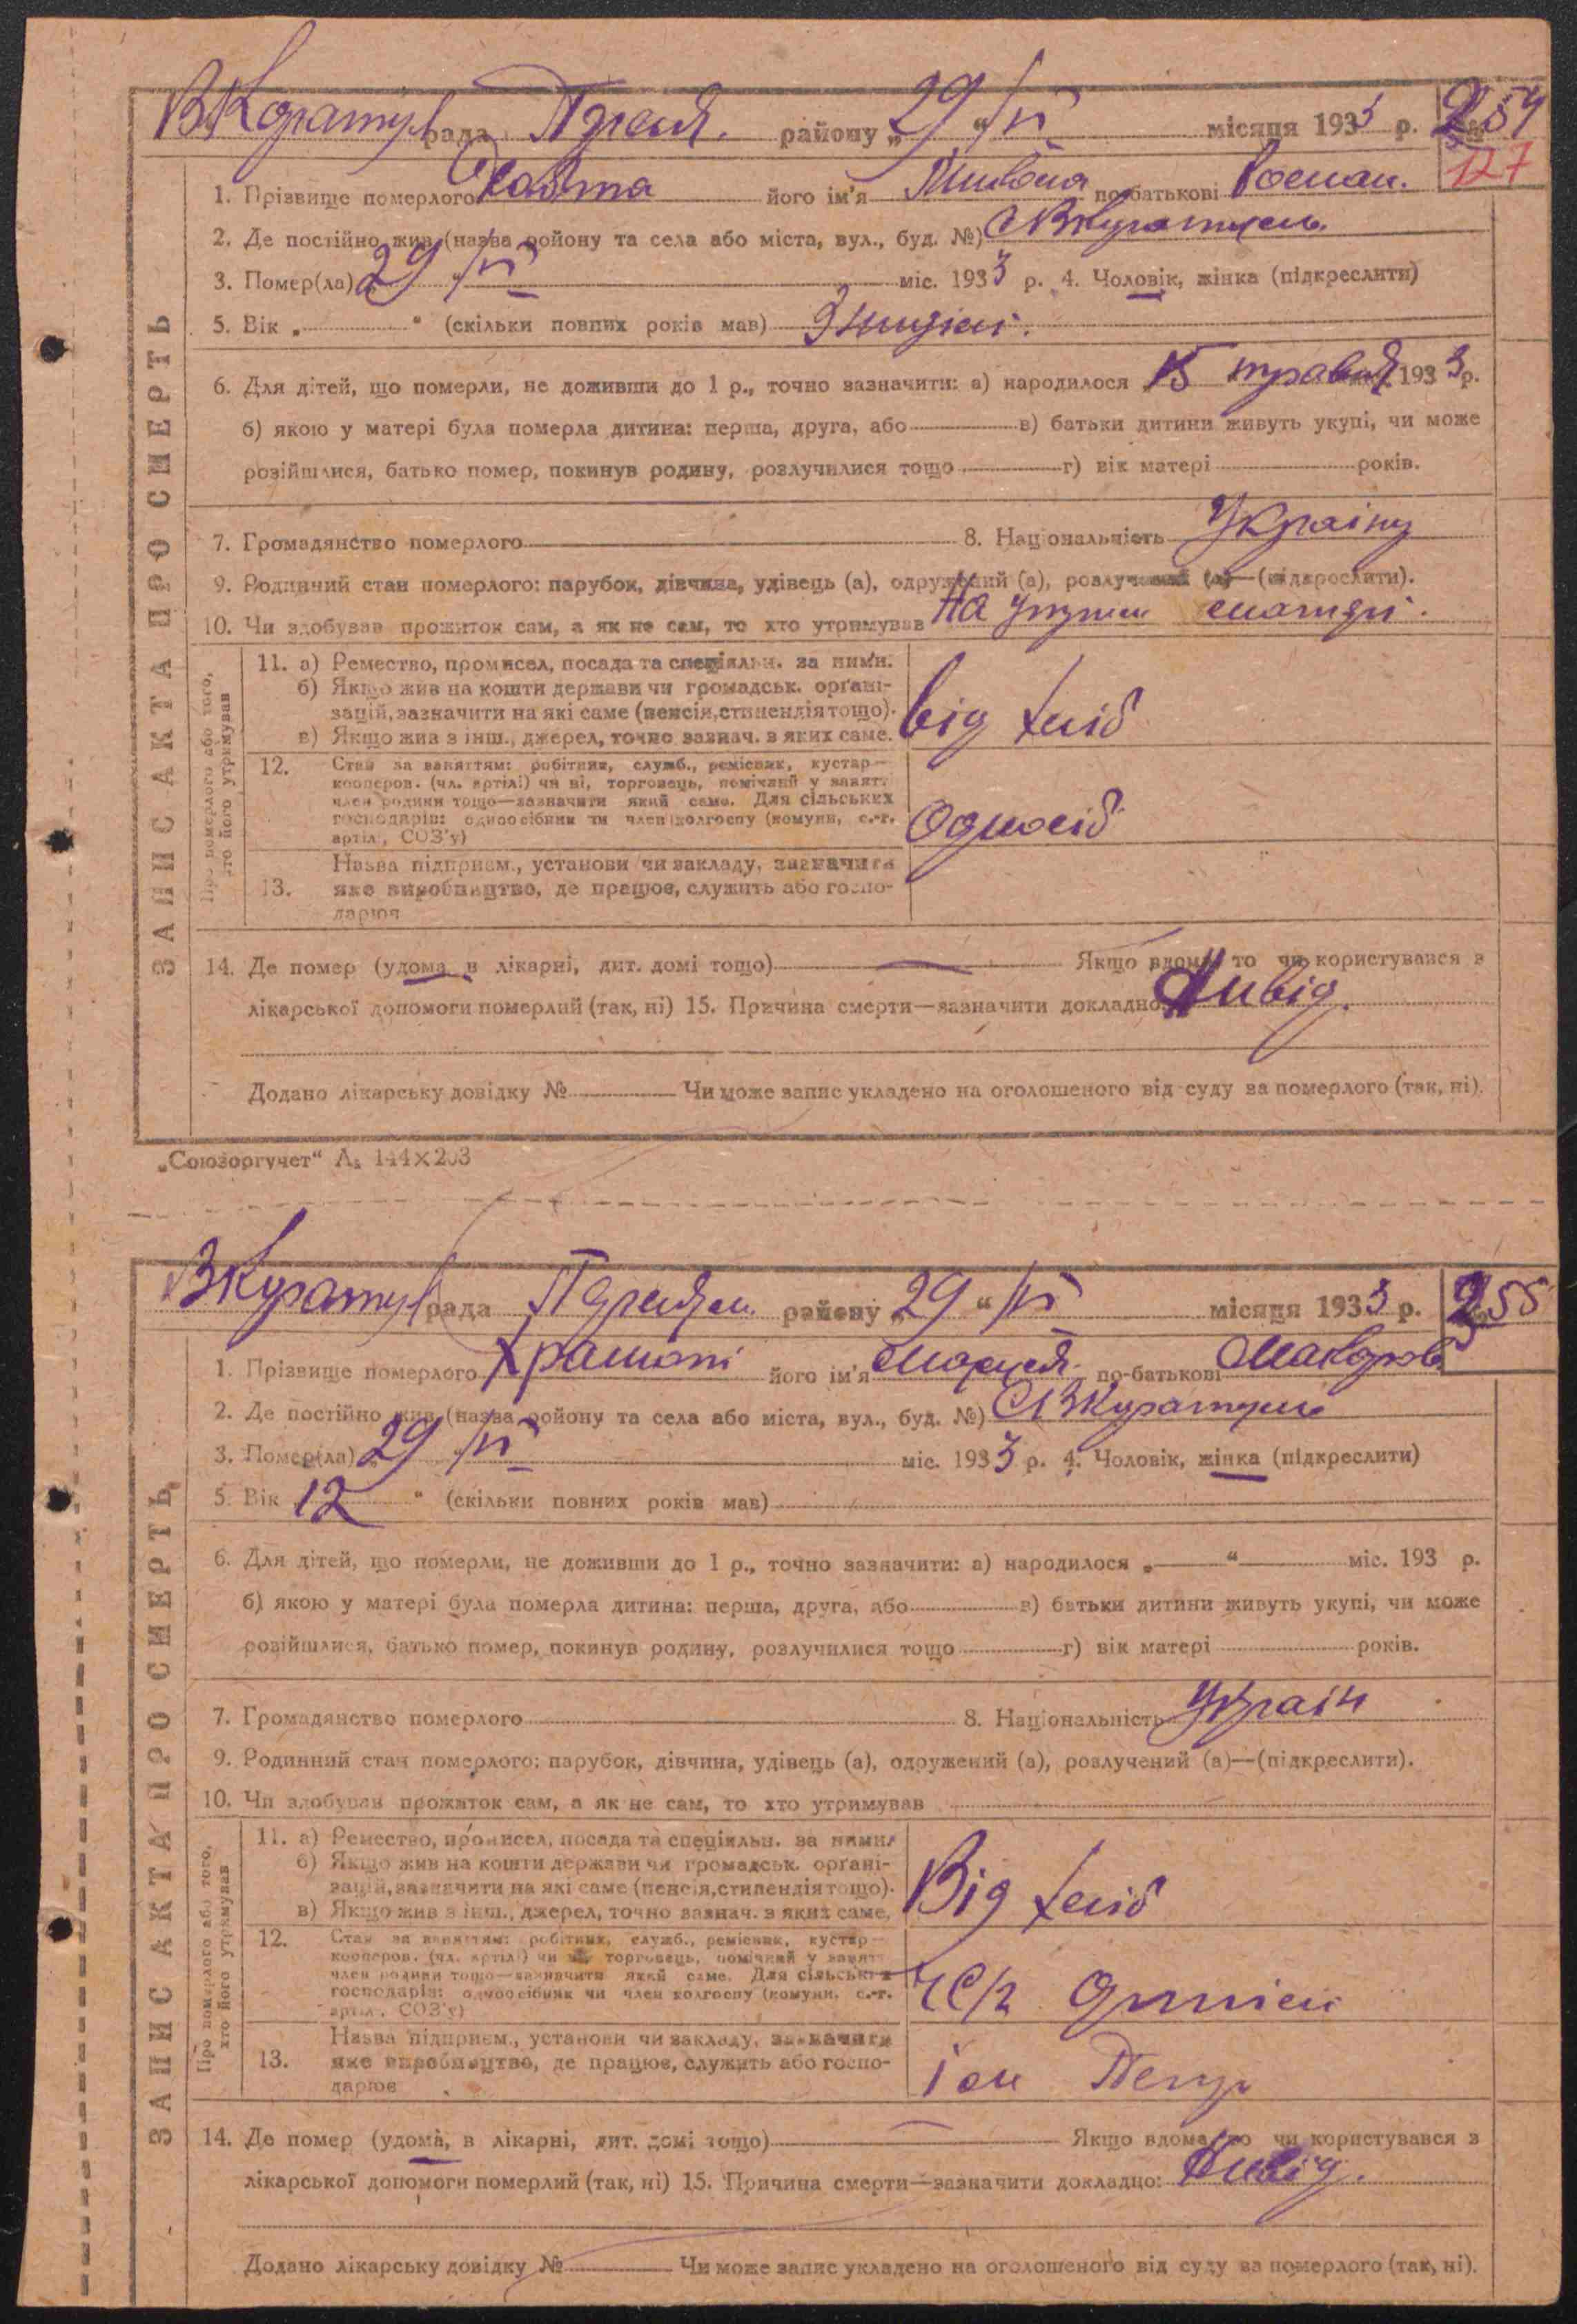 рада району „29“ /VI місяця 1933 р. № 254
127
1. Прізвище померлого його ім'я по-батькові Роман.
2. Де постійно жив (назва ройону та села або міста, вул., буд. №)
3. Помер(ла) „29 /VI міс. 1933 р. 4. Чоловік, жінка (підкреслити)
5. Вік „ “ (скільки повних років мав)
6. Для дітей, що померли, не доживши до 1 р., точно зазначити: а) народилося 15 травня 1933 р.
б) якою у матері була померла дитина: перша, друга, або в) батьки дитини живуть укупі, чи може
розійшлися, батько помер, покинув родину, розлучилися тощо г) вік матері років.
7. Громадянство померлого 8. Національність Україну
9. Родинний стан померлого: парубок, дівчина, удівець (а), одружений (а), розлучений (а)—(підкреслити).
10. Чи здобував прожиток сам, а як не сам, то хто утримував На утрим матері.
ЗАПИС АКТА ПРО СМЕРТЬ
Про померлого або того,
хто його утримував
11. а) Ремество, промисел, посада та спеціяльн. за ними.
б) Якщо жив на кошти держави чи громадськ. органі-
зацій, зазначити на які саме (пенсія, стипендія тощо).
в) Якщо жив з інш., джерел, точно зазнач. з яких саме.
від хліб
12. Стан за заняттям: робітник, служб., ремісник, кустар—
кооперов. (чл. артілі) чи ні, торговець, помічний у занятт.
член родини тощо—зазначити який саме. Для сільських
господарів: одноосібник чи член колгоспу (комуни, с.-г.
артілі, СОЗ'у)
Одноосіб
13. Назва підприєм., установи чи закладу, зазначити
яке виробництво, де працює, служить або госпо-
дарює
14. Де помер (удома, в лікарні, дит. домі тощо) Якщо вдома, то чи користувався з
лікарської допомоги померлий (так, ні) 15. Причина смерти—зазначити докладно:
Додано лікарську довідку № Чи може запис укладено на оголошеного від суду за померлого (так, ні).
„Союзоргучет“ А₅ 144×203
рада району „29“ /VI місяця 1933 р. № 255
1. Прізвище померлого його ім'я по-батькові
2. Де постійно жив (назва ройону та села або міста, вул., буд. №)
3. Помер(ла) „29 /VI міс. 1933 р. 4. Чоловік, жінка (підкреслити)
5. Вік 12 “ (скільки повних років мав)
6. Для дітей, що померли, не доживши до 1 р., точно зазначити: а) народилося „ “ міс. 193 р.
б) якою у матері була померла дитина: перша, друга, або в) батьки дитини живуть укупі, чи може
розійшлися, батько помер, покинув родину, розлучилися тощо г) вік матері років.
7. Громадянство померлого 8. Національність Україн
9. Родинний стан померлого: парубок, дівчина, удівець (а), одружений (а), розлучений (а)—(підкреслити).
10. Чи здобував прожиток сам, а як не сам, то хто утримував
ЗАПИС АКТА ПРО СМЕРТЬ
Про померлого або того,
хто його утримував
11. а) Ремество, промисел, посада та спеціяльн. за ними
б) Якщо жив на кошти держави чи громадськ. органі-
зацій, зазначити на які саме (пенсія, стипендія тощо).
в) Якщо жив з інш., джерел, точно зазнач. з яких саме.
Від хліб
12. Стан за заняттям: робітник, служб., ремісник, кустар—
кооперов. (чл. артілі) чи ні, торговець, помічний у занятт.
член родини тощо—зазначити який саме. Для сільських
господарів: одноосібник чи член колгоспу (комуни, с.-г.
артілі, СОЗ'у)
13. Назва підприєм., установи чи закладу, зазначити
яке виробництво, де працює, служить або госпо-
дарює
14. Де помер (удома, в лікарні, дит. домі тощо) Якщо вдома, то чи користувався з
лікарської допомоги померлий (так, ні) 15. Причина смерти—зазначити докладно:
Додано лікарську довідку № Чи може запис укладено на оголошеного від суду за померлого (так, ні).